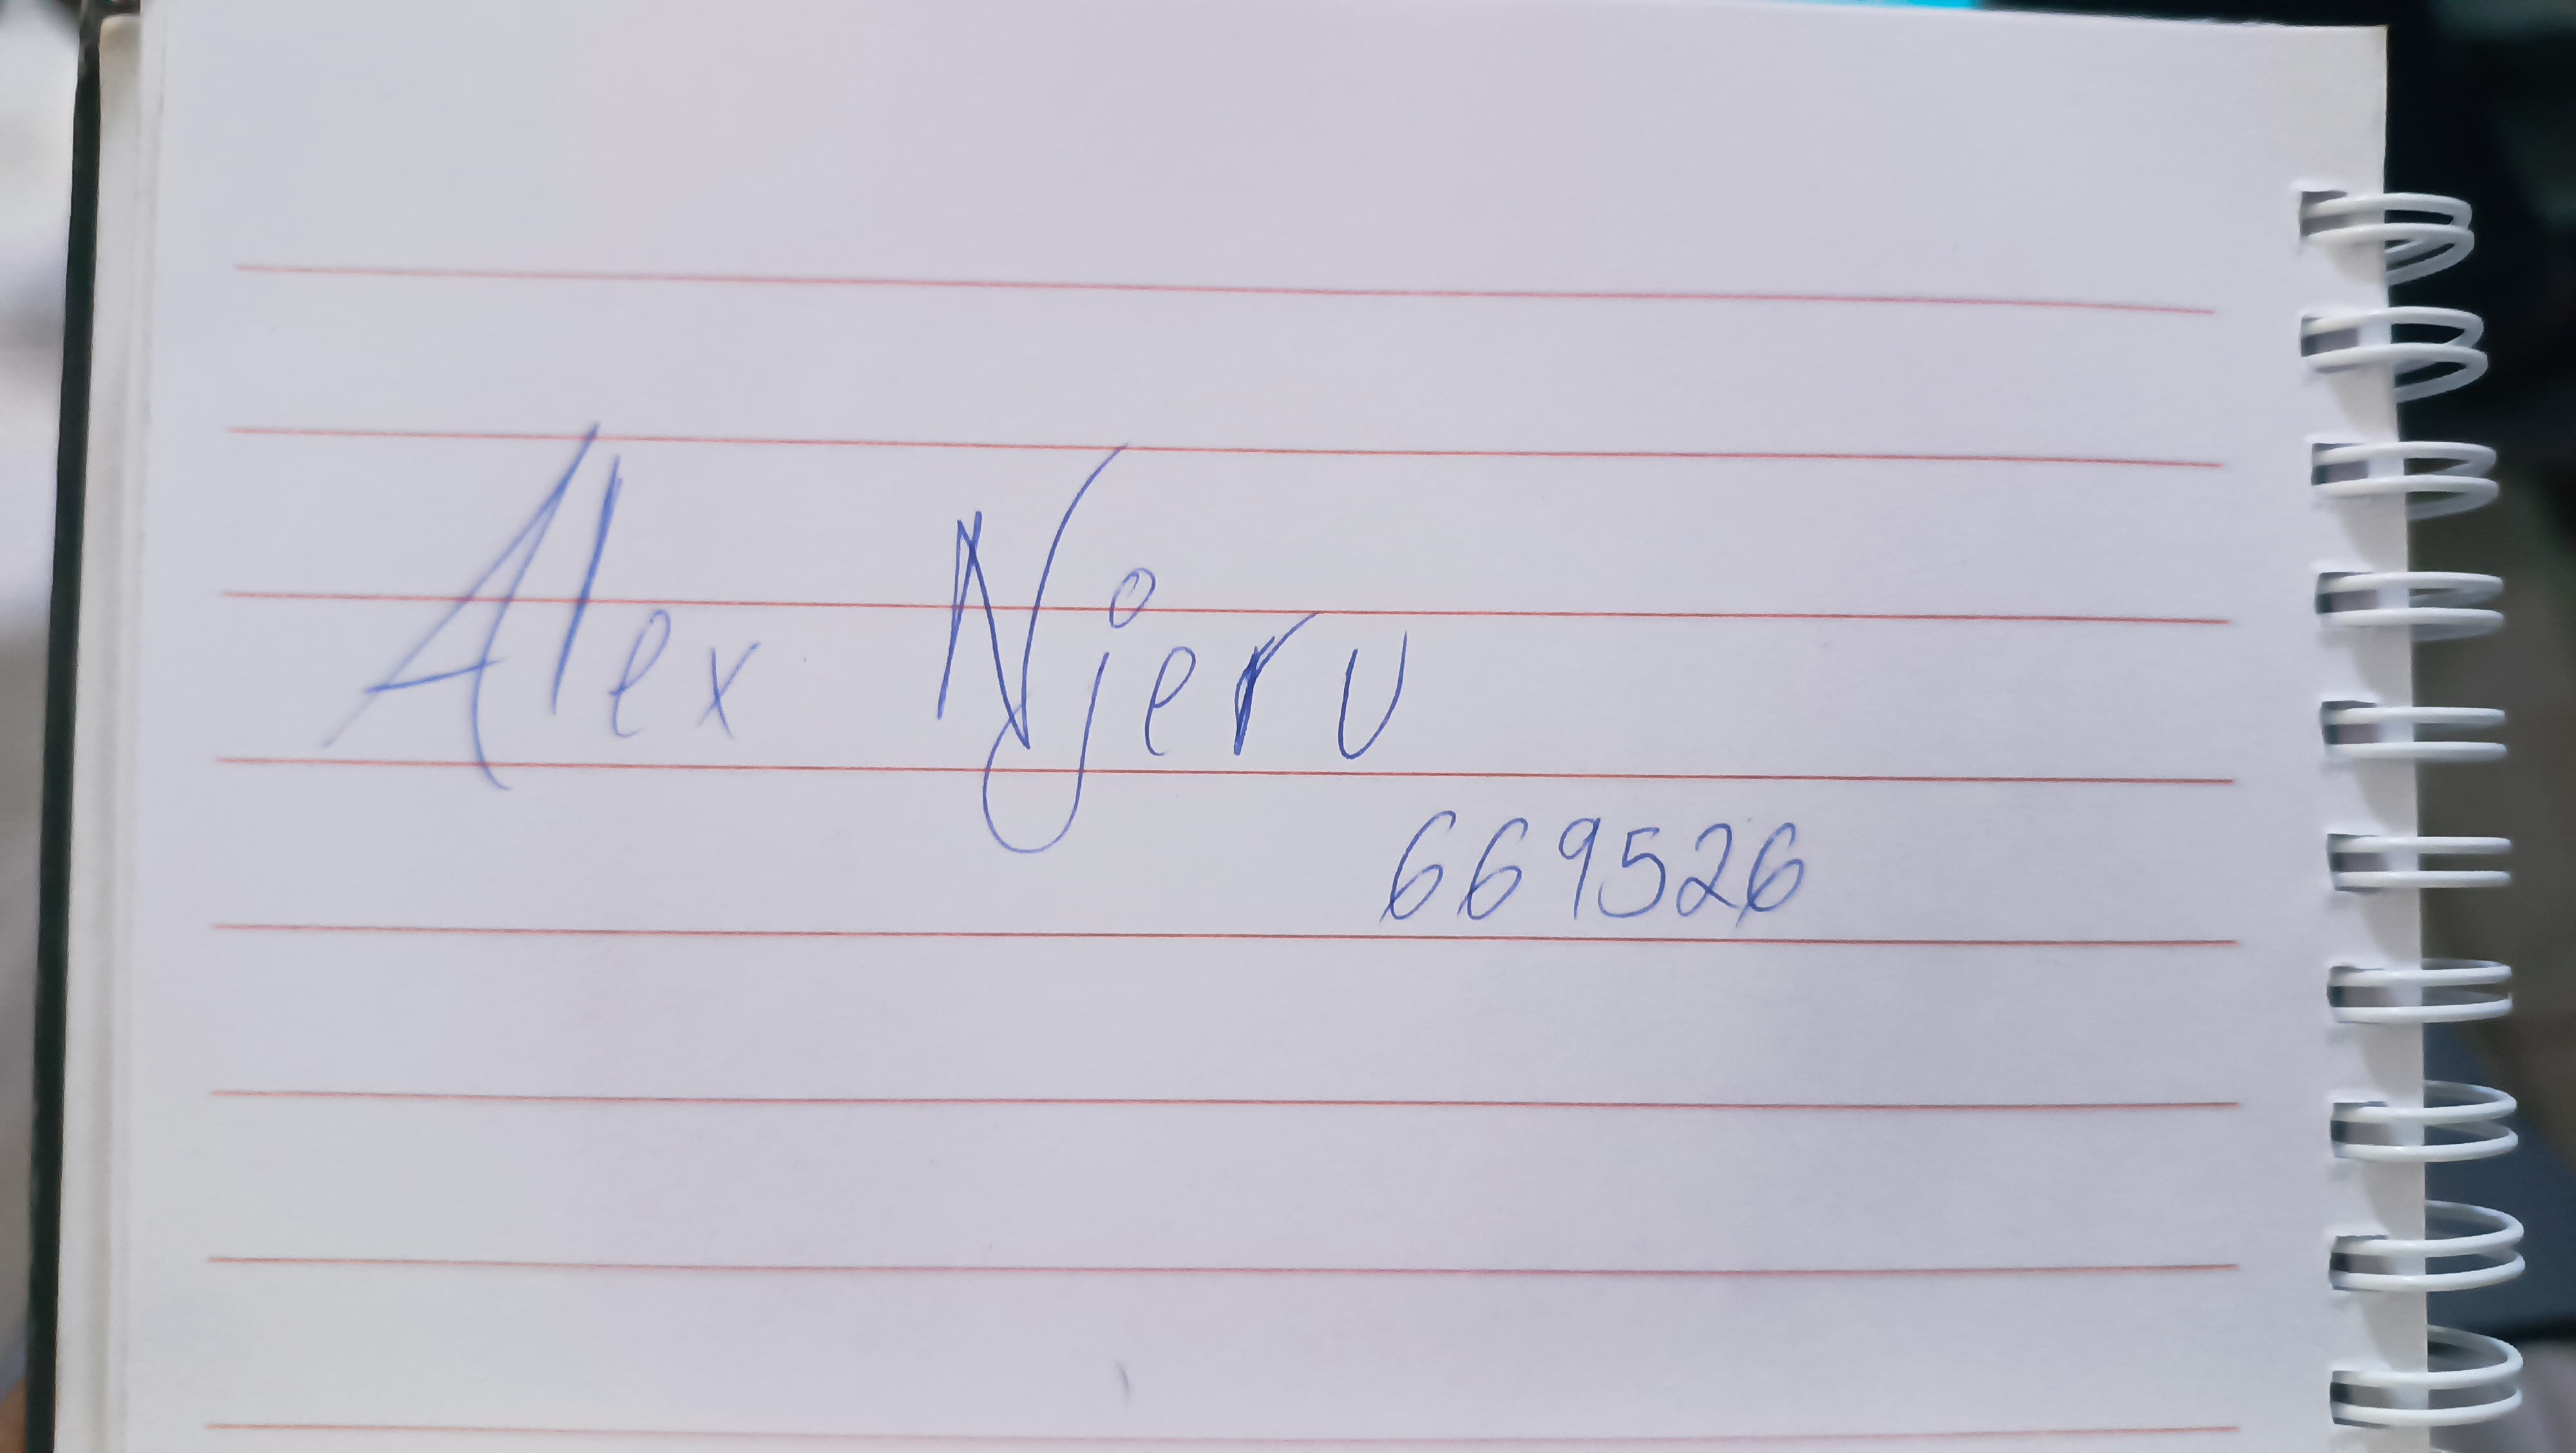 Alex Njeru
669526